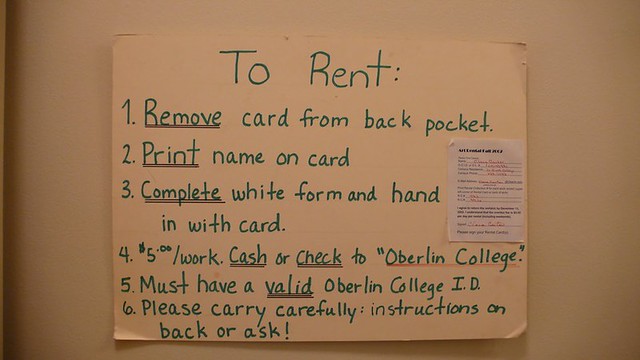 To Rent:
1. Remove card from back pocket.
2. Print name on card
3. Complete white form and hand
in with card.
4. $5.00/work. Cash or check to "Oberlin College."
5. Must have a valid Oberlin College I.D.
6. Please carry carefully: instructions on
back or ask!
Art Rental Fall 2007
Please sign your Rental Card(s)